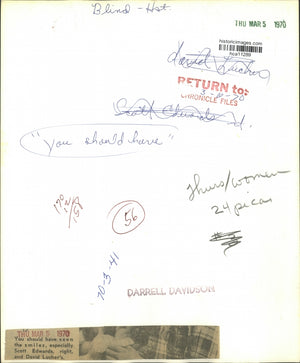 Blind - Hst.
THU MAR 5 1970
historicimages.com
hca11289
David Lucher
RETURN to:
3-4-70
CHRONICLE FILES
Scott Edwards
"You should have"
Thurs/women
24 picas
56
70-3-41
DARRELL DAVIDSON
THU MAR 5 1970
You should have seen
the smiles, especially
Scott Edwards, right,
and David Lucher's.